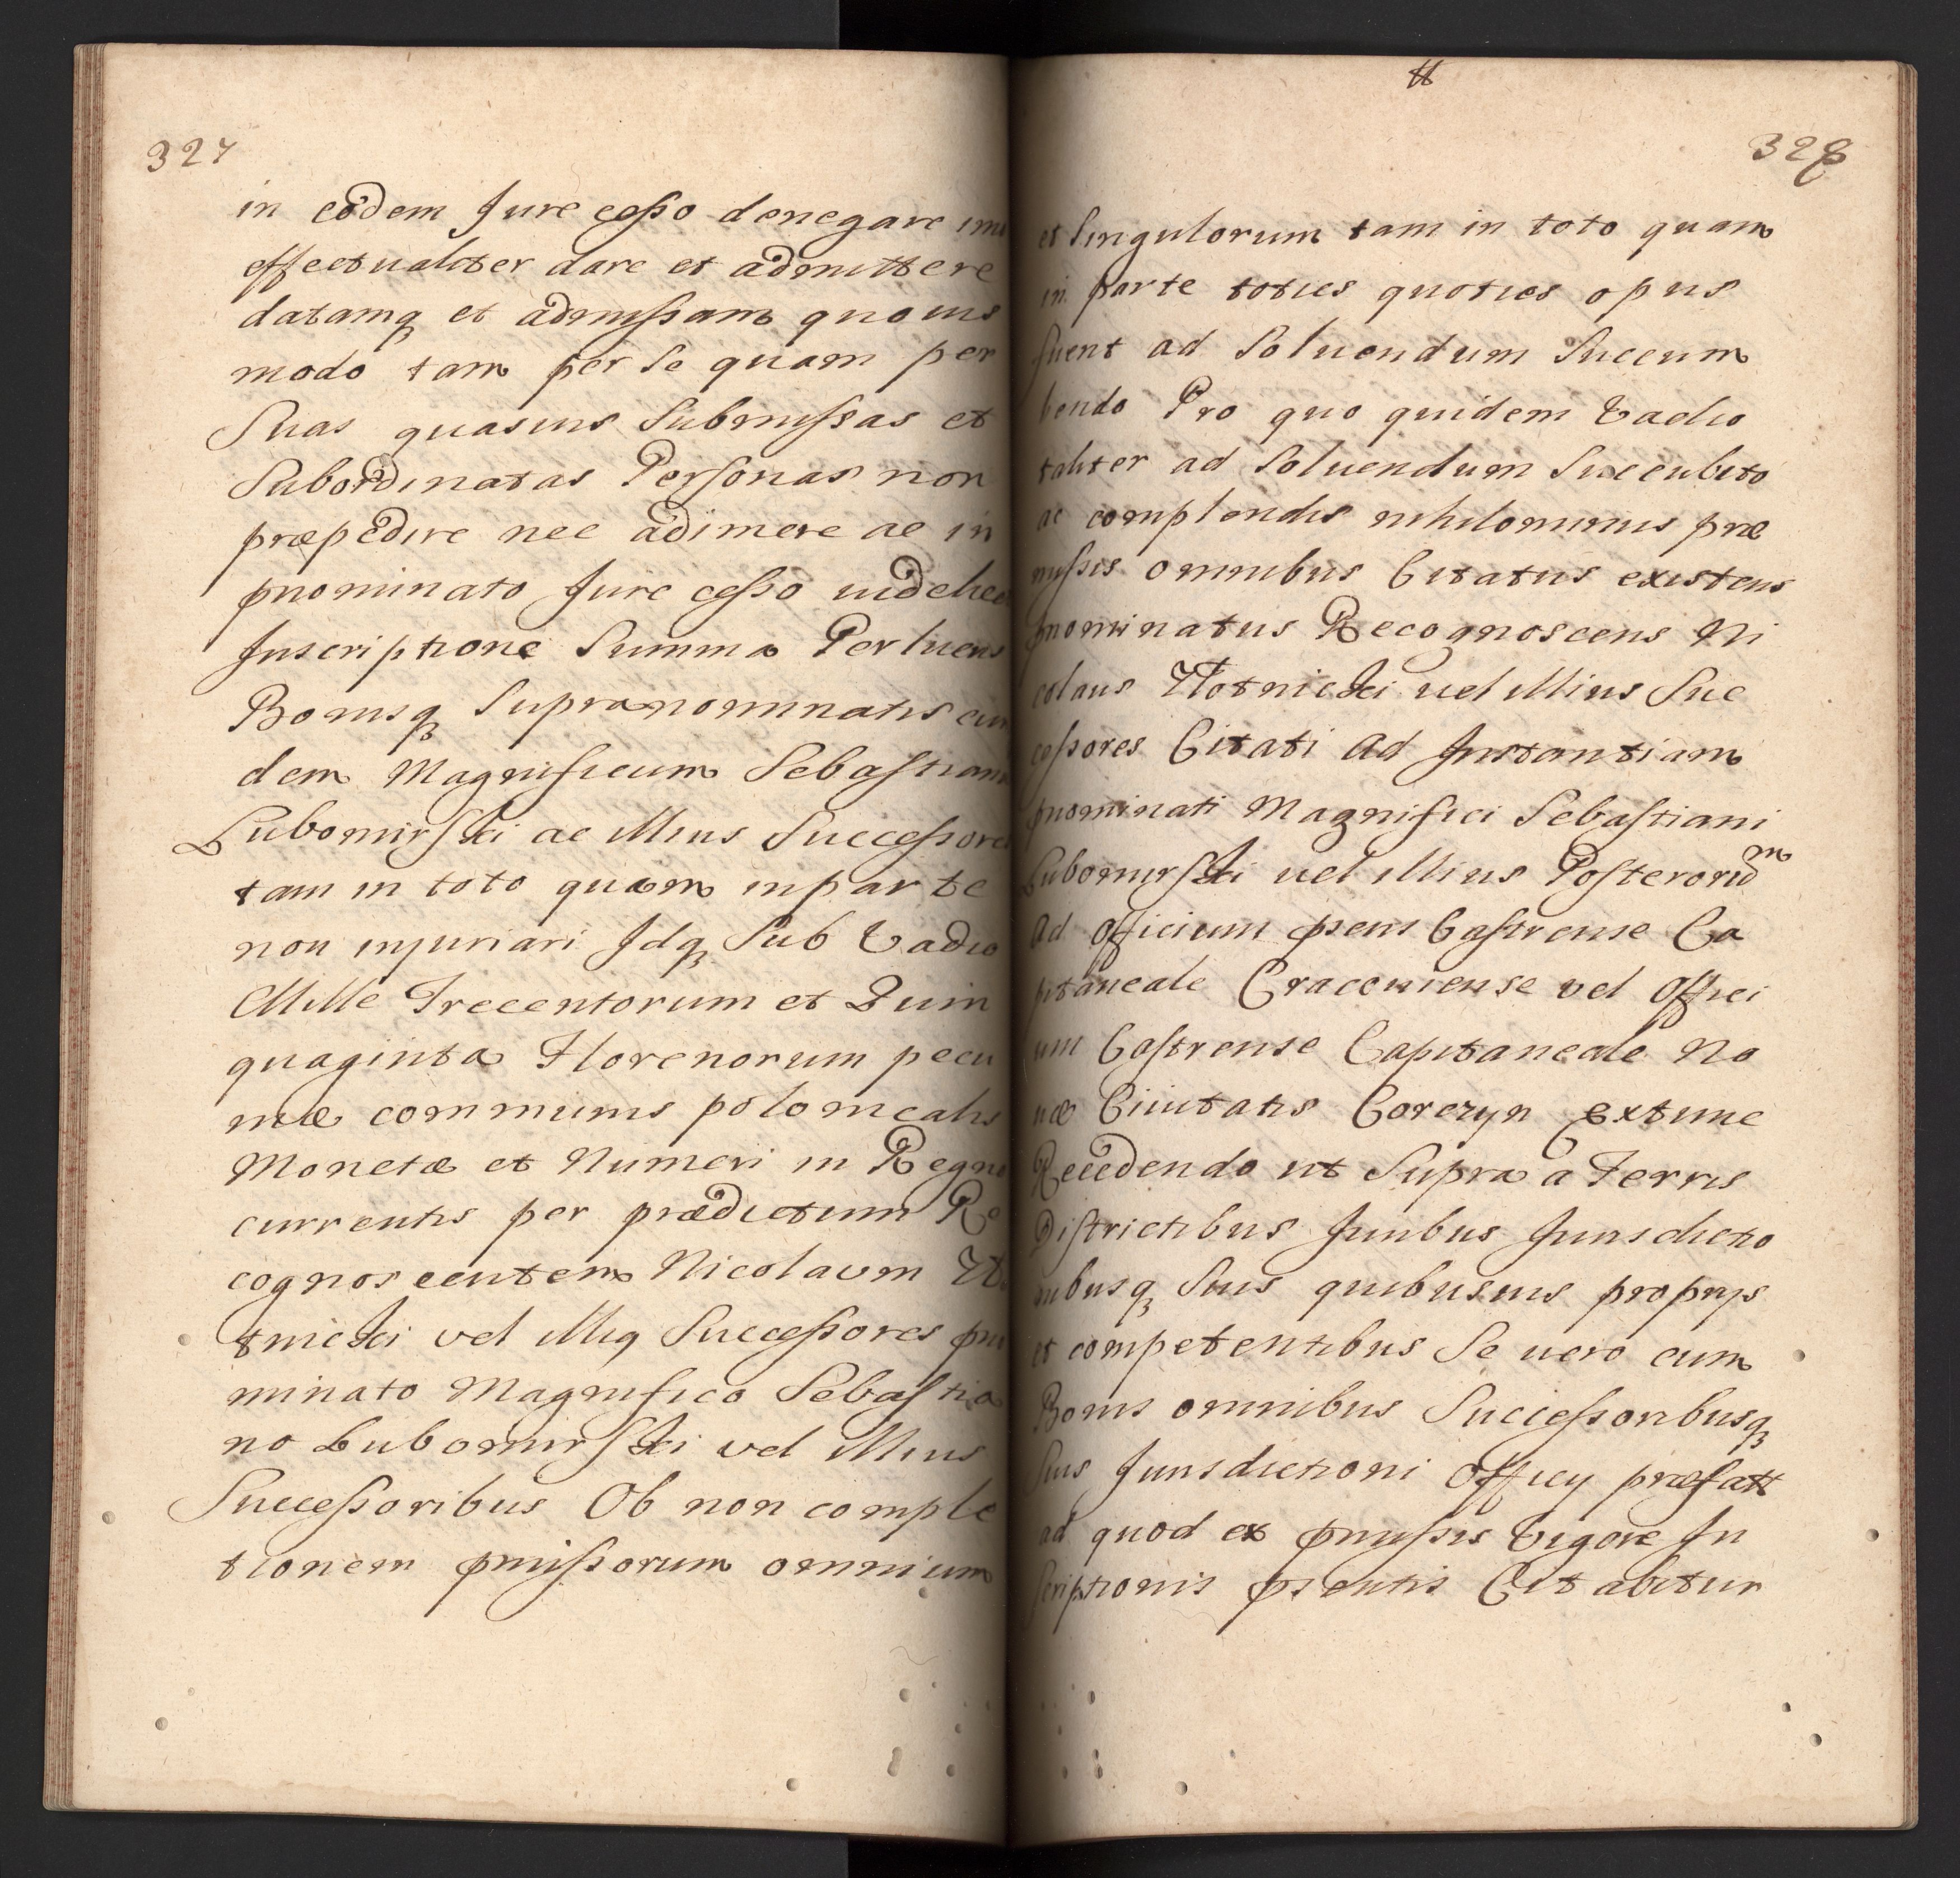 327
in eodem Jure cesso denegare imo
effectualiter dare et admittere
datamq; et admissam quouis
modo tam per Se quam per
Suas quasuis Submissas et
Subordinatas Personas non
præpedire nec adimere ac in
pnominato Jure cesso uidelicet
Inscriptione Summa Perlucris
Bonisq; Supranominatis eun
dem Magnificum Sebastianum
Lubomirski ac illius Successores
tam in toto quam inparte
non injuriari Idq; Sub Vadio
Mille Trecentorum et Quin
quaginta Florenorum pecu
niæ communis polonicalis
Monetæ et Numeri in Regno
currentis per prædictum Re
cognoscentem Nicolaum
tnicki vel illiq Successores pno
minato Magnifico Sebastia
no Lubomirski vel illius
Successoribus Ob non comple
tionem pmissorum omnium
328
et Singulorum tam in toto quam
in parte toties quoties opus
fuerit ad Soluendum Succum
bendo Pro quo quidem Vadio
taliter ad Soluendum Succubito
ac complendis nihilominus præ
missis omnibus Citatus existens
pnominatus Recognoscens Ni
colaus vel illius Suc
cessores Citati ad Instantiam
pnominati Magnifici Sebastiani
Lubomirski uel illius Posterorum
Ad Officium psens Castrense Ca
pitaneale Cracouiense vel Offici
um Castrense Capitaneale No
uæ Ciuitatis Corczyn Extunc
Recedendo ut Supra a Terris
Districtibus Juribus Jurisdictio
nibusq; Suis quibusuis proprijs
et competentibus Se uero cum
Bonis omnibus Successoribusq;
Suis Jurisdictioni Officij præfatt
ad quod ex pmissis Vigore In
scriptionis psentis Citabitur